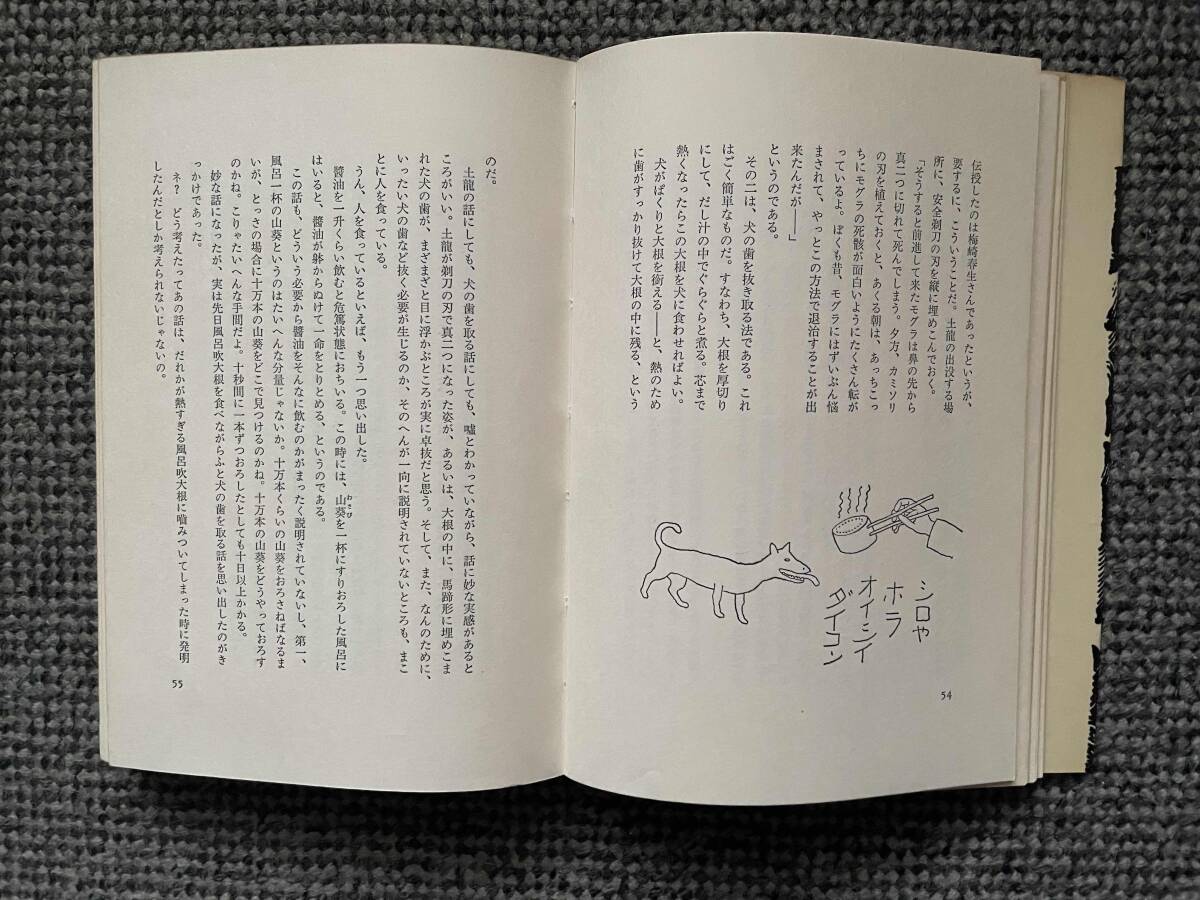 伝授したのは梅崎春生さんであったというが、
要するに、こういうことだ。土龍の出没する場
所に、安全剃刀の刃を縦に埋めこんでおく。
「そうすると前進して来たモグラは鼻の先から
真二つに切れて死んでしまう。夕方、カミソリ
の刃を植えておくと、あくる朝は、あっちこっ
ちにモグラの死骸が面白いようにたくさん転が
っているよ。ぼくも昔、モグラにはずいぶん悩
まされて、やっとこの方法で退治することが出
来たんだが――」
というのである。
その二は、犬の歯を抜き取る法である。これ
はごく簡単なものだ。すなわち、大根を厚切り
にして、だし汁の中でぐらぐらと煮る。芯まで
熱くなったらこの大根を犬に食わせればよい。
犬がぱくりと大根を銜える――と、熱のため
に歯がすっかり抜けて大根の中に残る、という
シロや
ホラ
オイシイ
ダイコン
54
のだ。
土龍の話にしても、犬の歯を取る話にしても、嘘とわかっていながら、話に妙な実感があると
ころがいい。土龍が剃刀の刃で真二つになった姿が、あるいは、大根の中に、馬蹄形に埋めこま
れた犬の歯が、まざまざと目に浮かぶところが実に卓抜だと思う。そして、また、なんのために、
いったい犬の歯など抜く必要が生じるのか、そのへんが一向に説明されていないところも、まこ
とに人を食っている。
うん、人を食っているといえば、もう一つ思い出した。
醬油を一升くらい飲むと危篤状態におちいる。この時には、山葵を一杯にすりおろした風呂に
わさび
はいると、醬油が躰からぬけて一命をとりとめる、というのである。
この話も、どういう必要から醬油をそんなに飲むのかがまったく説明されていないし、第一、
風呂一杯の山葵というのはたいへんな分量じゃないか。十万本くらいの山葵をおろさねばなるま
いが、とっさの場合に十万本の山葵をどこで見つけるのかね。十万本の山葵をどうやっておろす
のかね。こりゃたいへんな手間だよ。十秒間に一本ずつおろしたとしても十日以上かかる。
妙な話になったが、実は先日風呂吹大根を食べながらふと犬の歯を取る話を思い出したのがき
っかけであった。
ネ？　どう考えたってあの話は、だれかが熱すぎる風呂吹大根に嚙みついてしまった時に発明
したんだとしか考えられないじゃないの。
55